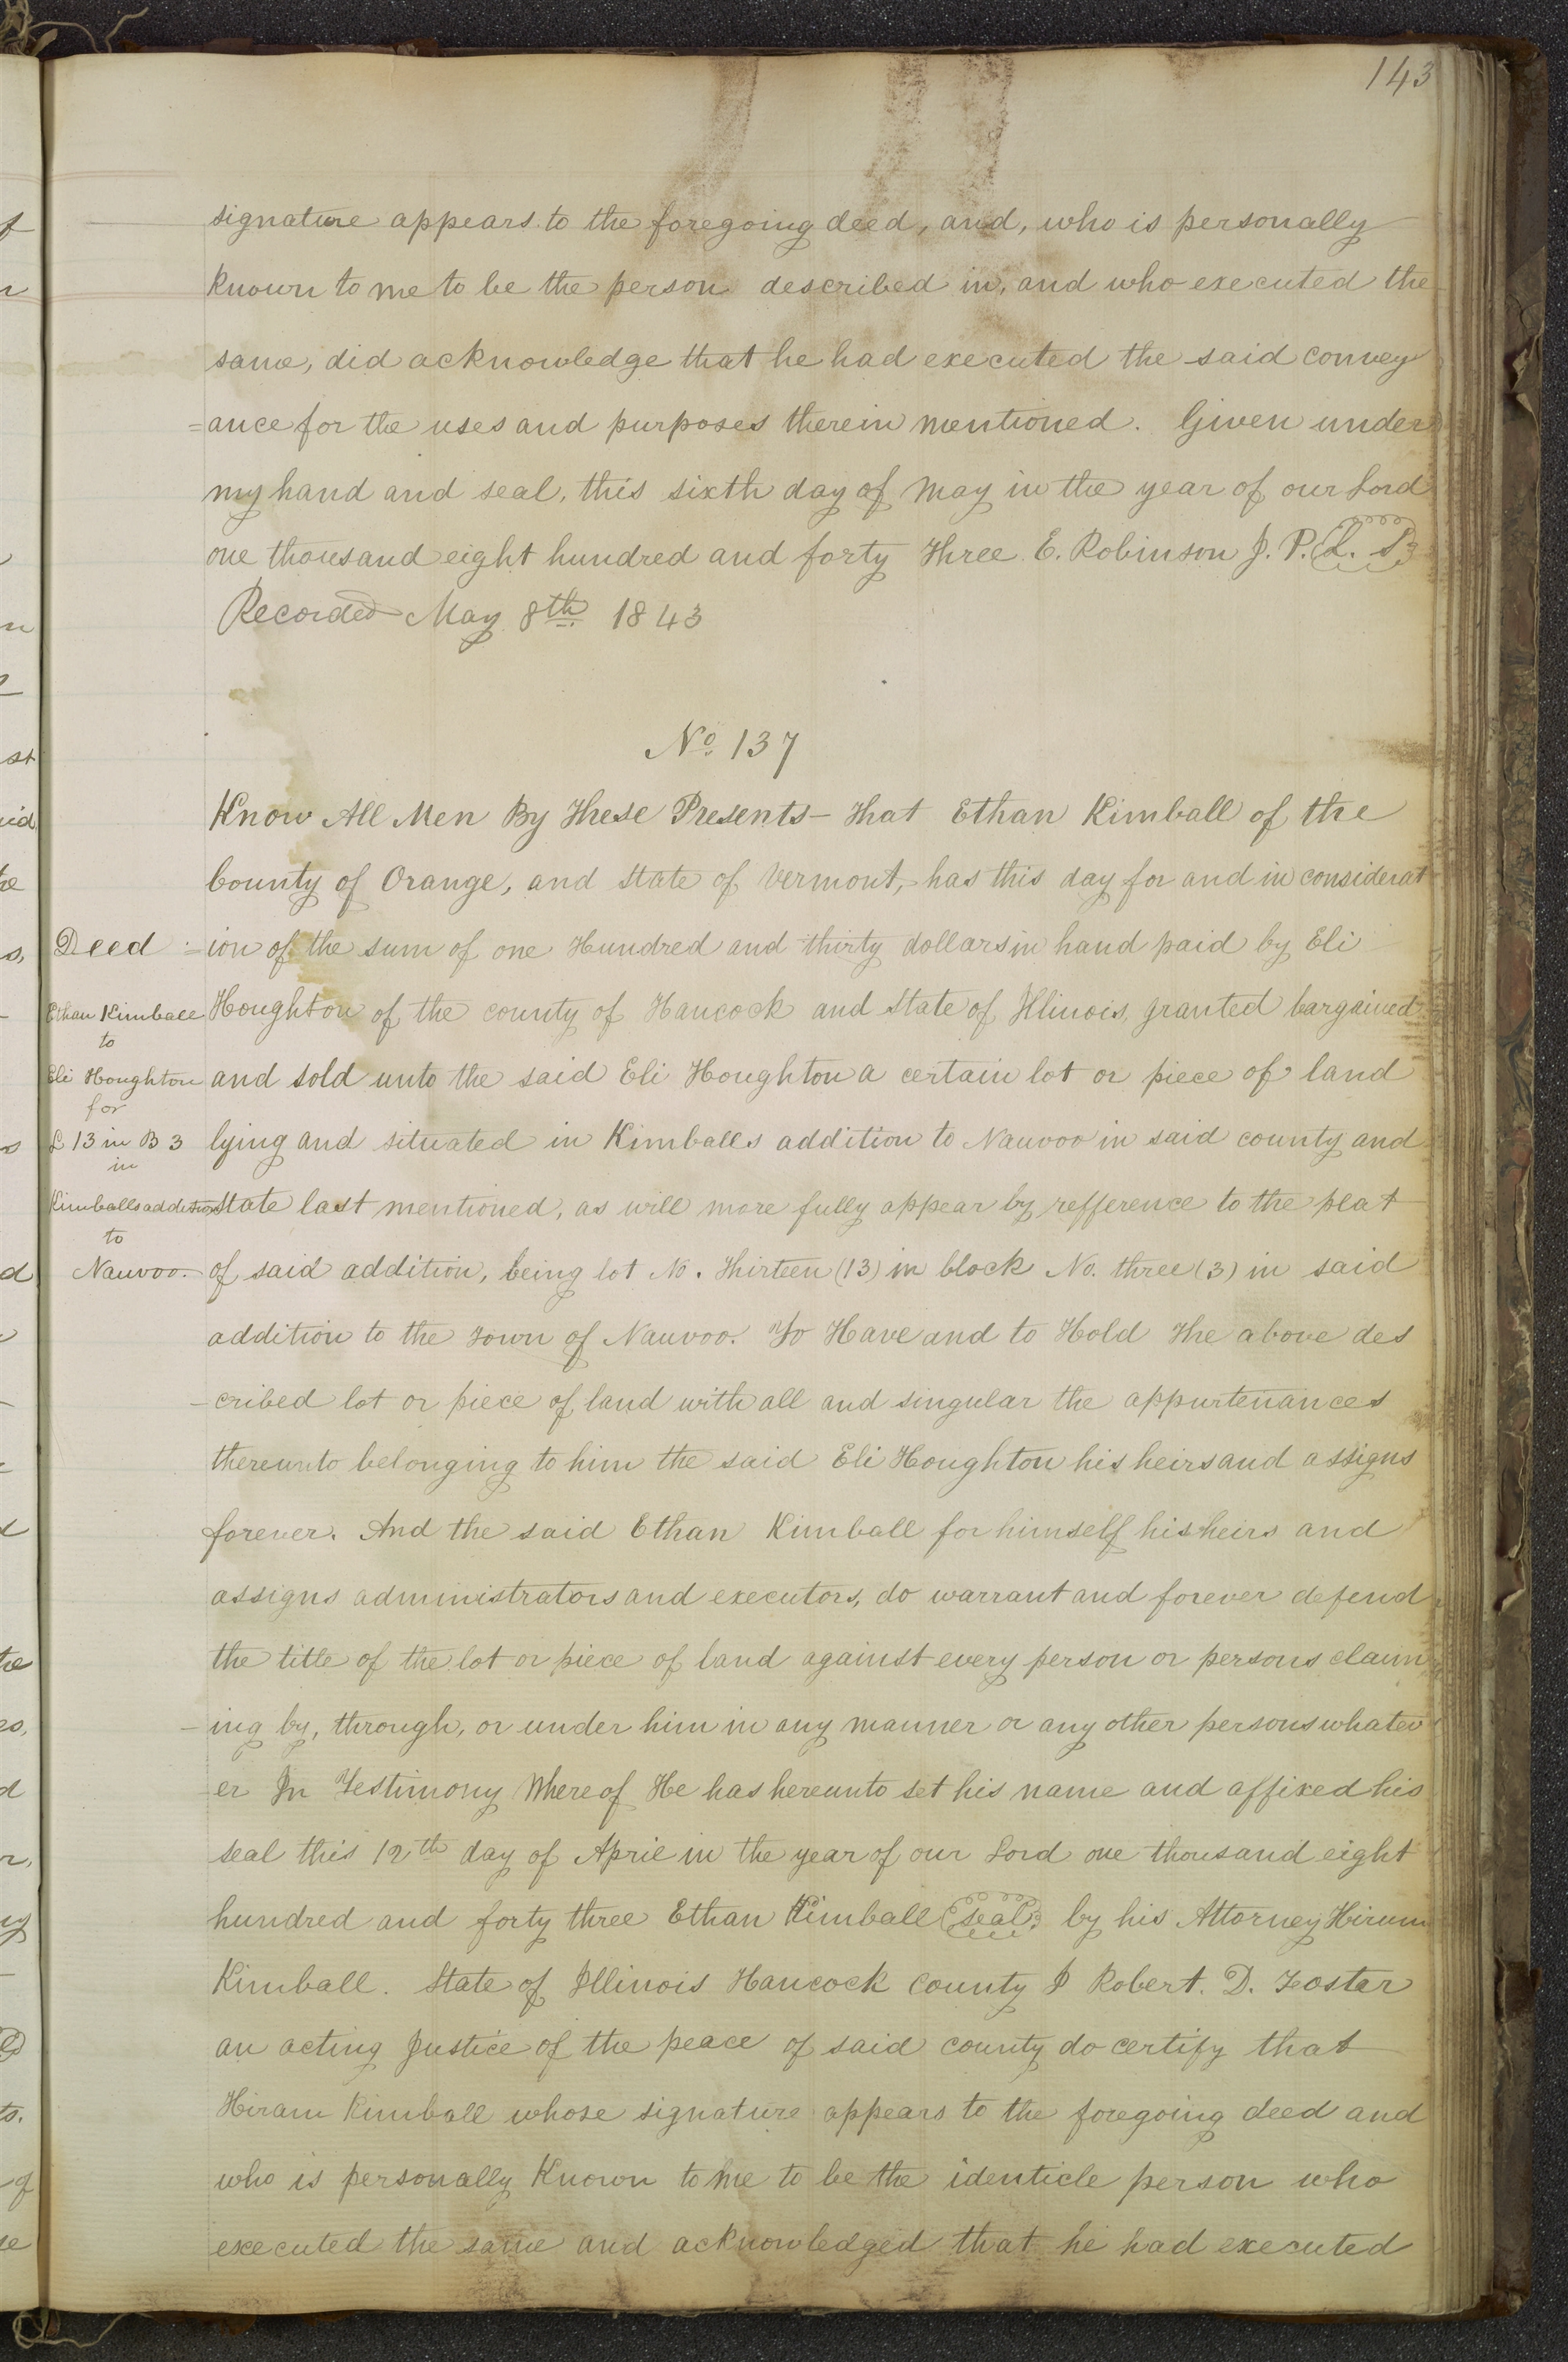 143
signature appears to the foregoing deed, and, who is personally
known to me to be the person described in, and who executed the
same, did acknowledge that he had executed the said convey
=ance for the uses and purposes therein mentioned. Given under
my hand and seal, this sixth day of May in the year of our Lord
one thousand eight hundred and forty Three E. Robinson J. P. L. S.
Recorded May 8th 1843
No 137
Know All Men By These Presents - That Ethan Kimball of the
County of Orange, and State of Vermont, has this day for and in considerat
=ion of the sum of one Hundred and thirty dollars in hand paid by Eli
Houghton of the county of Hancock and State of Illinois, granted bargained
and sold unto the said Eli Houghton a certain lot or piece of land
lying and situated in Kimballs addition to Nauvoo in said county and
State last mentioned, as will more fully appear by refference to the plat
of said addition, being lot No. Thirteen (13) in block No. three (3) in said
addition to the Town of Nauvoo. To Have and to Hold The above des
-cribed lot or piece of land with all and singular the appurtenances
thereunto belonging to him the said Eli Houghton his heirs and assigns
forever. And the said Ethan Kimball for himself his heirs and
assigns administrators and executors, do warrant and forever defend
the title of the lot or piece of land against every person or persons claim
-ing by, through, or under him in any manner or any other persons whatev
-er In Testimony Whereof He has hereunto set his name and affixed his
seal this 12th day of April in the year of our Lord one thousand eight
hundred and forty three Ethan Kimball seal by his Attorney Hiram
Kimball. State of Illinois Hancock County I Robert. D. Foster
an acting Justice of the peace of said county do certify that
Hiram Kimball whose signature appears to the foregoing deed and
who is personally Known to me to be the identicle person who
executed the same and acknowledged that he had executed
Deed
Ethan Kimball
to
Eli Houghton
for
L 13 in B 3
in
Kimballs addition
to
Nauvoo.